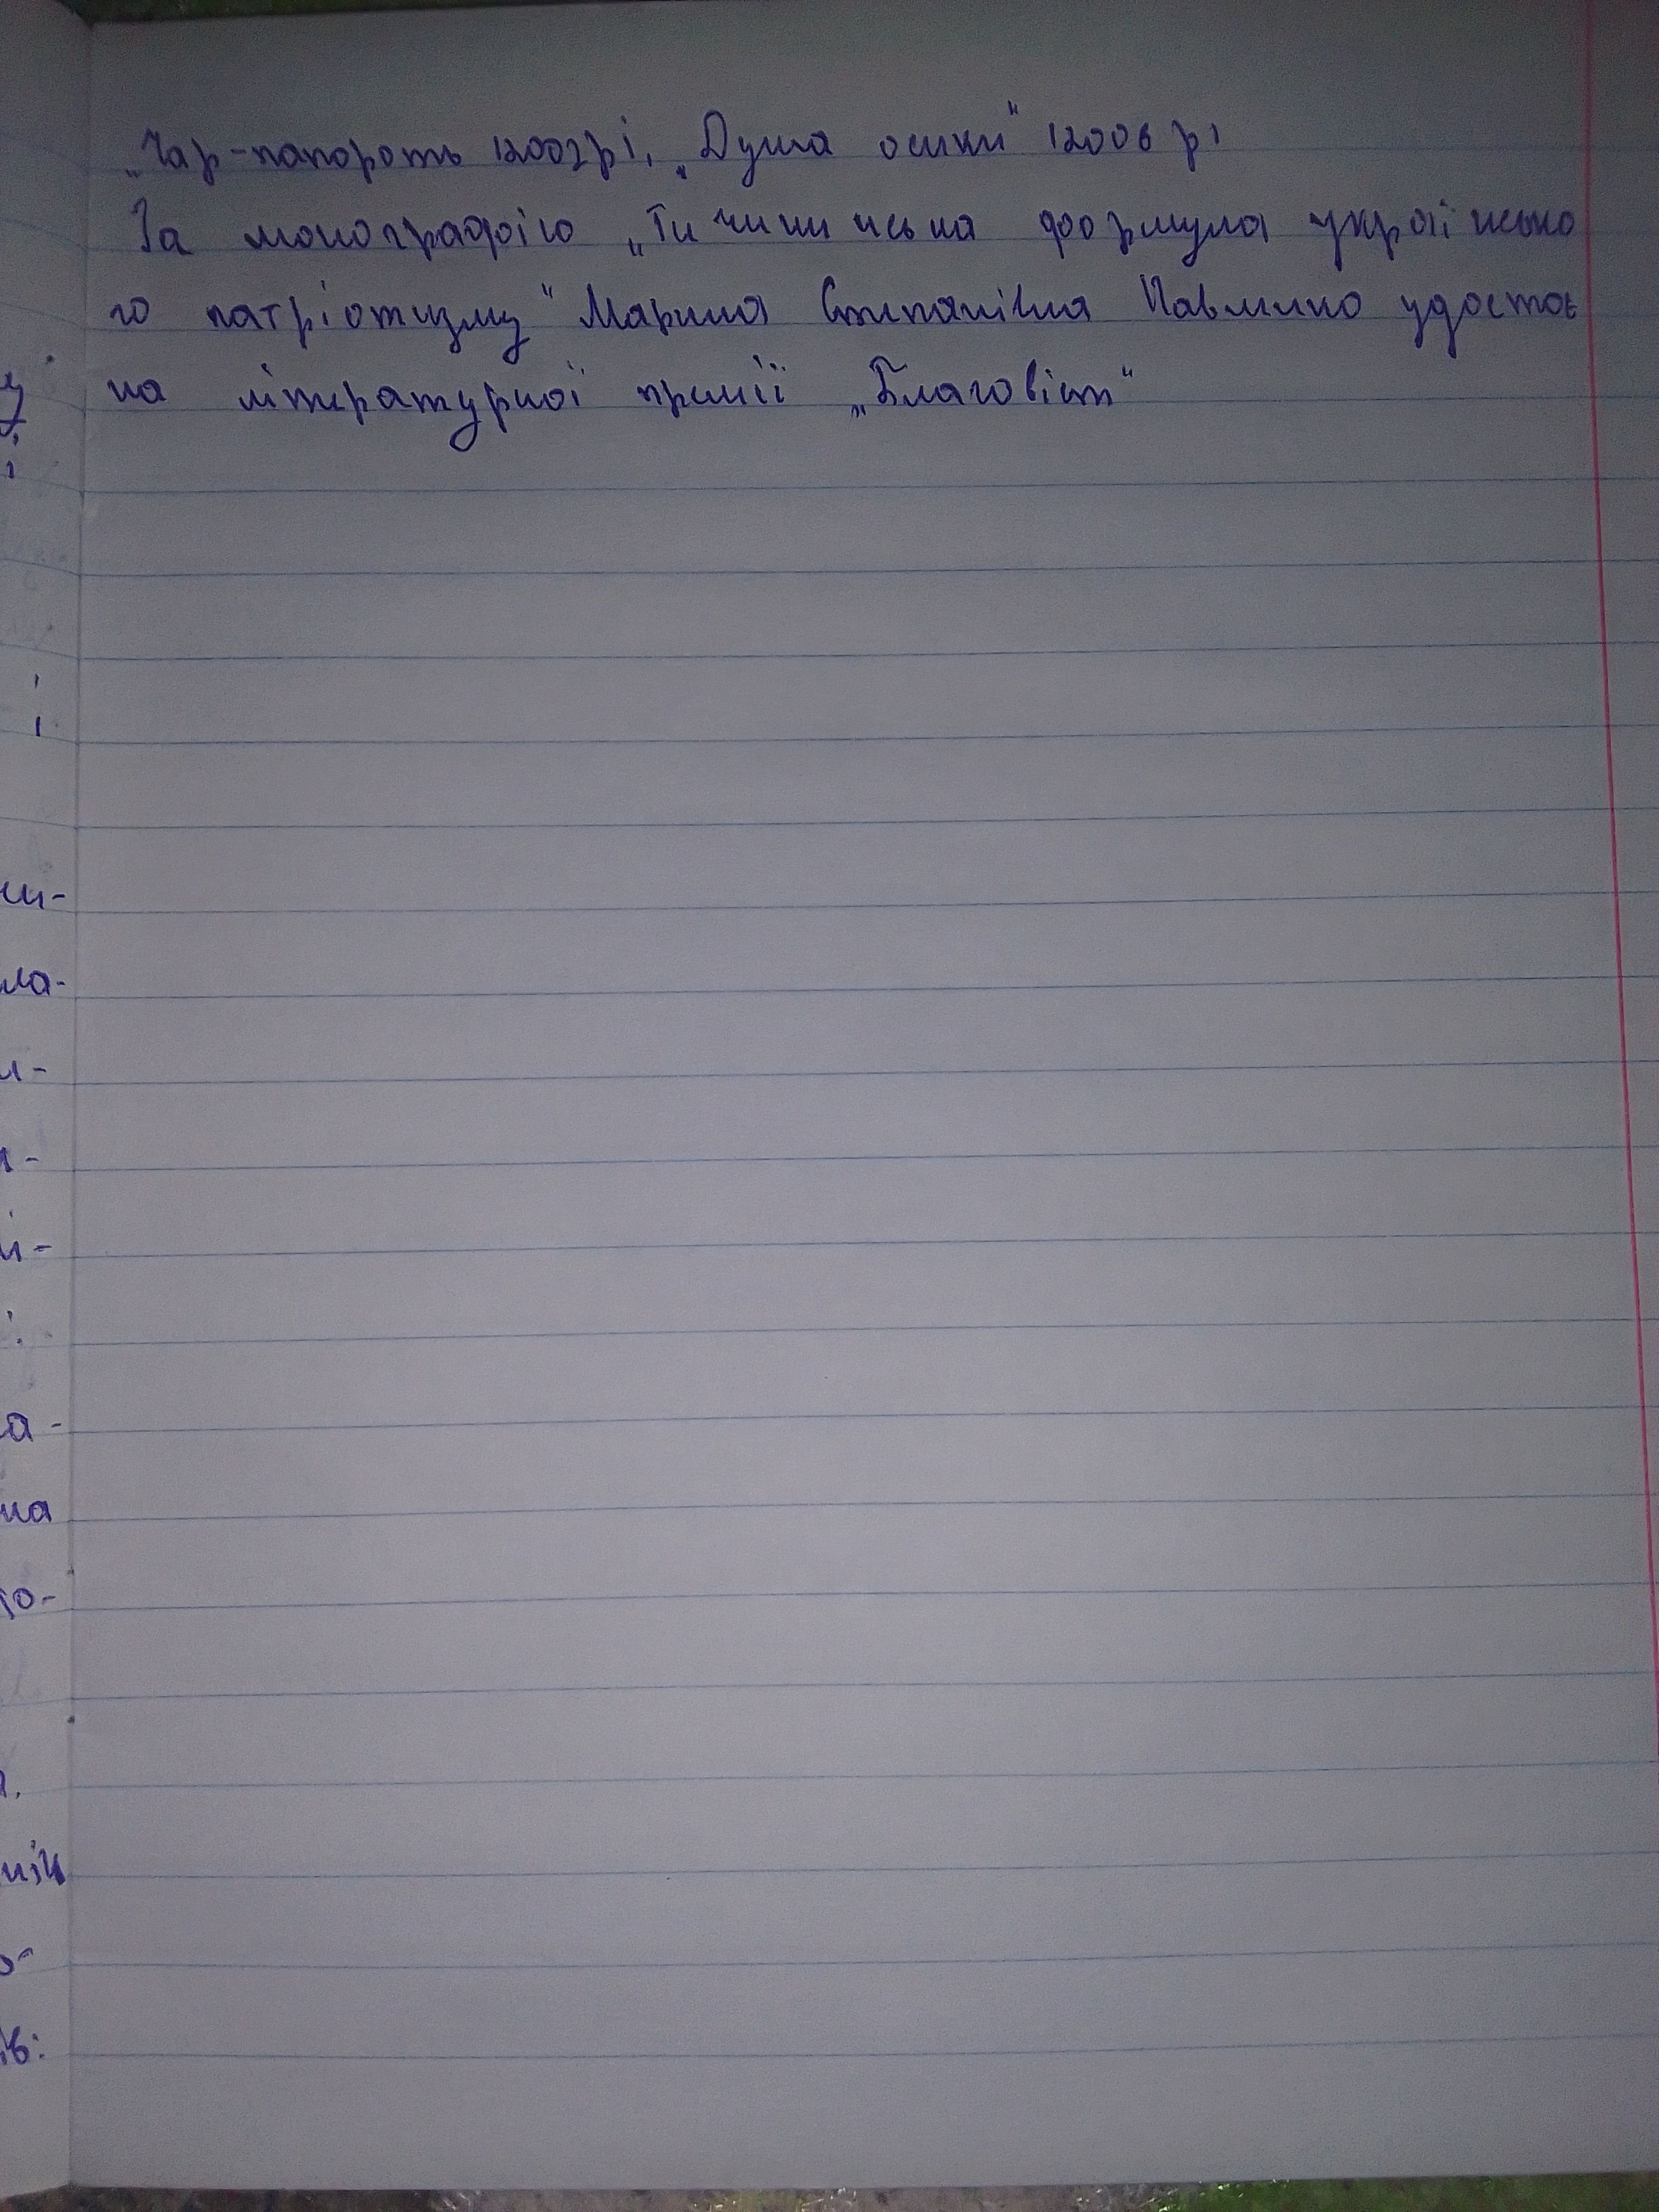 „Чар-папороть (2002р), „Душа осики" (2006 р)
За монографію „Тичининська формула українсько
го патріотизму" Марина Степанівна Павленко удостоє
на літературної премії „Благовіст"
ши-
ла-
и-
а-
на
ю-
нік
ів: